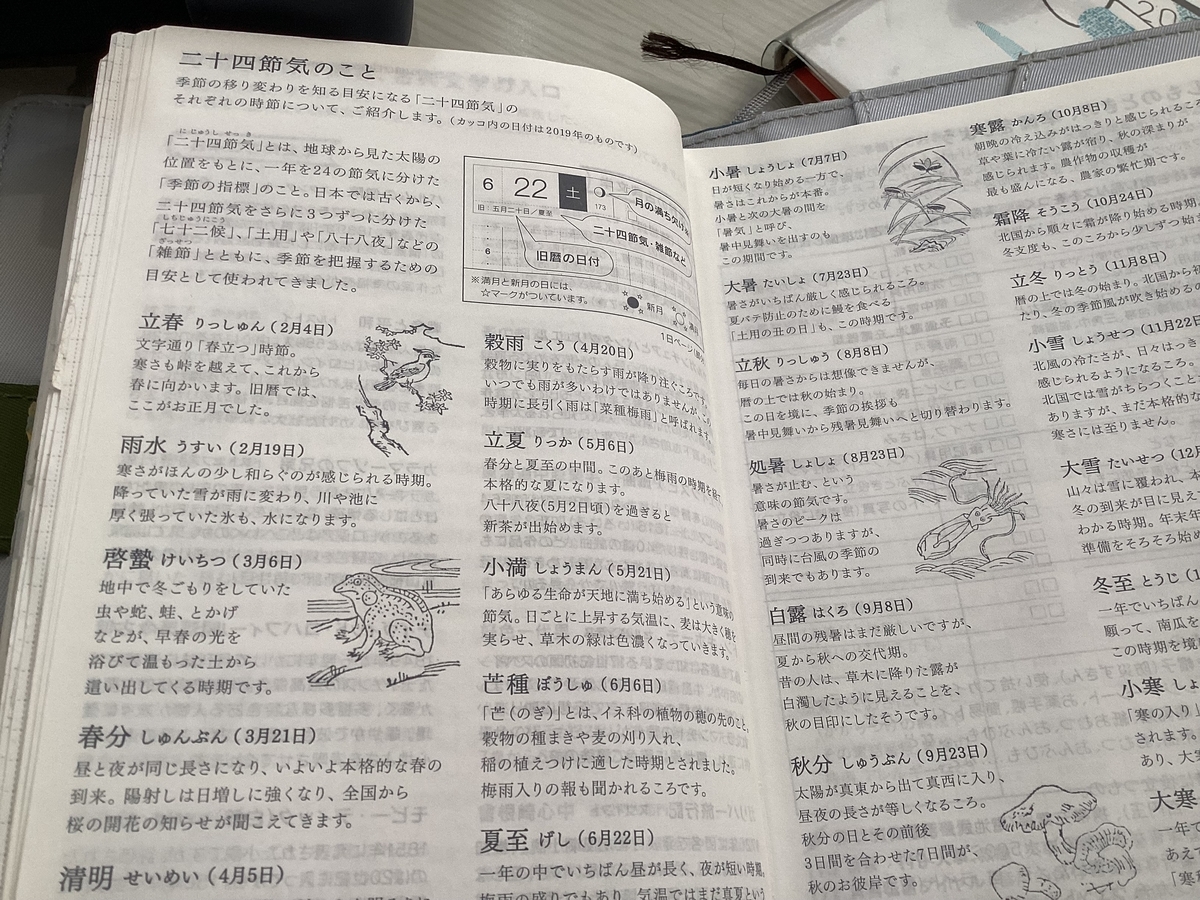 二十四節気のこと
季節の移り変わりを知る目安になる「二十四節気」の
それぞれの時節について、ご紹介します。(カッコ内の日付は2019年のものです)
「二十四節気」とは、地球から見た太陽の
位置をもとに、一年を24の節気に分けた
「季節の指標」のこと。日本では古くから、
二十四節気をさらに3つずつに分けた
「七十二候」、「土用」や「八十八夜」などの
「雑節」とともに、季節を把握するための
目安として使われてきました。
6 22 土
旧:五月二十日/夏至 173
月の満ち欠け
二十四節気・雑節など
旧暦の日付
6
※満月と新月の日には、
☆マークがついています。
新月
1日ページ
立春 りっしゅん(2月4日)
文字通り「春立つ」時節。
寒さも峠を越えて、これから
春に向かいます。旧暦では、
ここがお正月でした。
雨水 うすい(2月19日)
寒さがほんの少し和らぐのが感じられる時期。
降っていた雪が雨に変わり、川や池に
厚く張っていた氷も、水になります。
啓蟄 けいちつ(3月6日)
地中で冬ごもりをしていた
虫や蛇、蛙、とかげ
などが、早春の光を
浴びて温もった土から
這い出してくる時期です。
春分 しゅんぶん(3月21日)
昼と夜が同じ長さになり、いよいよ本格的な春の
到来。陽射しは日増しに強くなり、全国から
桜の開花の知らせが聞こえてきます。
清明 せいめい(4月5日)
穀雨 こくう(4月20日)
穀物に実りをもたらす雨が降り注ぐころ。
いつでも雨が多いわけではありませんが、この
時期に長引く雨は「菜種梅雨」と呼ばれます。
立夏 りっか(5月6日)
春分と夏至の中間。このあと梅雨の時期を経て
本格的な夏になります。
八十八夜(5月2日頃)を過ぎると
新茶が出始めます。
小満 しょうまん(5月21日)
「あらゆる生命が天地に満ち始める」という意味の
節気。日ごとに上昇する気温に、麦は大きく穂を
実らせ、草木の緑は色濃くなっていきます。
芒種 ぼうしゅ(6月6日)
「芒(のぎ)」とは、イネ科の植物の穂の先のこと。
穀物の種まきや麦の刈り入れ、
稲の植えつけに適した時期とされました。
梅雨入りの報も聞かれるころです。
夏至 げし(6月22日)
一年の中でいちばん昼が長く、夜が短い時期。
梅雨の盛りでもあり、気温ではまだ真夏という
小暑 しょうしょ(7月7日)
日が短くなり始める一方で、
暑さはこれからが本番。
小暑と次の大暑の間を
「暑気」と呼び、
暑中見舞いを出すのも
この期間です。
大暑 たいしょ(7月23日)
暑さがいちばん厳しく感じられるころ。
夏バテ防止のために鰻を食べる
「土用の丑の日」も、この時期です。
立秋 りっしゅう(8月8日)
毎日の暑さからは想像できませんが、
暦の上では秋の始まり。
この日を境に、季節の挨拶も
暑中見舞いから残暑見舞いへと切り替わります。
処暑 しょしょ(8月23日)
暑さが止む、という
意味の節気です。
暑さのピークは
過ぎつつありますが、
同時に台風の季節の
到来でもあります。
白露 はくろ(9月8日)
昼間の残暑はまだ厳しいですが、
夏から秋への交代期。
昔の人は、草木に降りた露が
白濁したように見えることを、
秋の目印にしたそうです。
秋分 しゅうぶん(9月23日)
太陽が真東から出て真西に入り、
昼夜の長さが等しくなるころ。
秋分の日とその前後
3日間を合わせた7日間が、
秋のお彼岸です。
寒露 かんろ(10月8日)
朝晩の冷え込みがはっきりと感じられるころ
草や葉に冷たい露が宿り、秋の深まりが
感じられます。農作物の収穫が
最も盛んになる、農家の繁忙期です。
霜降 そうこう(10月24日)
北国から順々に霜が降り始める時期
冬支度も、このころから少しずつ始
立冬 りっとう(11月8日)
暦の上では冬の始まり。北国から初
たり、冬の季節風が吹き始める
小雪 しょうせつ(11月22日
北風の冷たさが、日々はっき
感じられるようになるころ。
北国では雪がちらつくこと
ありますが、まだ本格的な
寒さには至りません。
大雪 たいせつ(12月
山々は雪に覆われ、本
冬の到来が目に見え
わかる時期。年末年
準備をそろそろ始め
冬至 とうじ(1
一年でいちばん
願って、南瓜を
この時期を境
小寒 しょ
「寒の入り」
されます。
あり、大寒
大寒
一年で
あえて
「寒
20